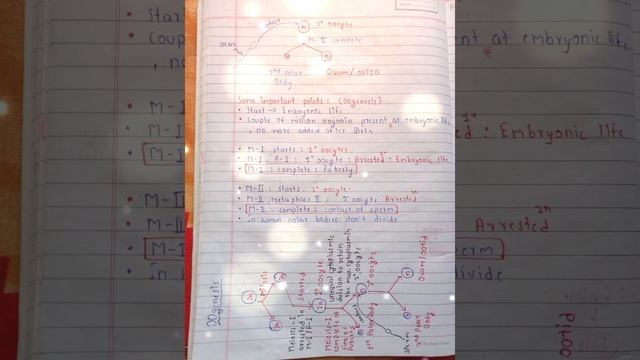 contact
n
2° oocyte
M-II complete
sperm
n
2nd Polar Body
Ovum/ootid
Some important points: (Oogenesis)
• Start → Embryonic life
• Couple of million oogonia present at embryonic life
, no more added after Birth
• M-I starts: 1° oocytes
• M-I, P-I: 1° oocyte: Arrested: Embryonic life
• M-I: complete: Puberty
• M-II: Starts: 2° oocyte
• M-II, metaphase II: 2° oocyte Arrested
• M-II: complete: contact of sperm
• In human polar bodies don't divide
Oogenesis
2n
Mitosis
2n
2n
Meiosis-I arrested in M-I/P-I
Started
2n
1° oocyte
Meiosis-I complete at time of Puberty
unequal cytoplasmic division to retain the max cytoplasm in 2° oocyte
n
2° oocyte
1st Polar Body
contact
sperm
n
Ovum/ootid
n
2nd Polar Body